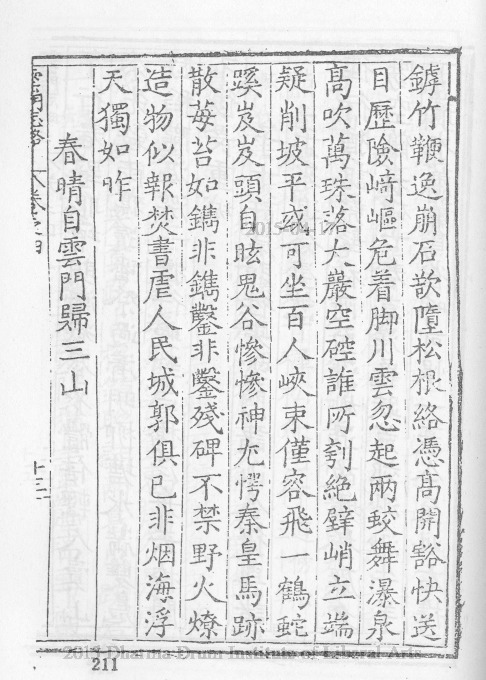 鎼竹鞭逸崩石欹墮松根絡憑高開豁快送
目歷險﨑嶇危着脚川雲忽起兩蛟舞瀑泉
高吹萬珠落大巖空硿誰所刳絶壁峭立端
疑削坡平或可坐百人峽束僅容飛一鶴蛇
蹊岌岌頭自眩鬼谷慘慘神尤愕秦皇馬跡
散莓苔如鐫非鐫鑿非鑿殘碑不禁野火燎
造物似報焚書虐人民城郭俱已非烟海浮
天獨如昨
春晴自雲門歸三山
雲門志略 卷之四
十三
2015-04-17
2013 Dharma Drum Institute of Liberal Arts
211